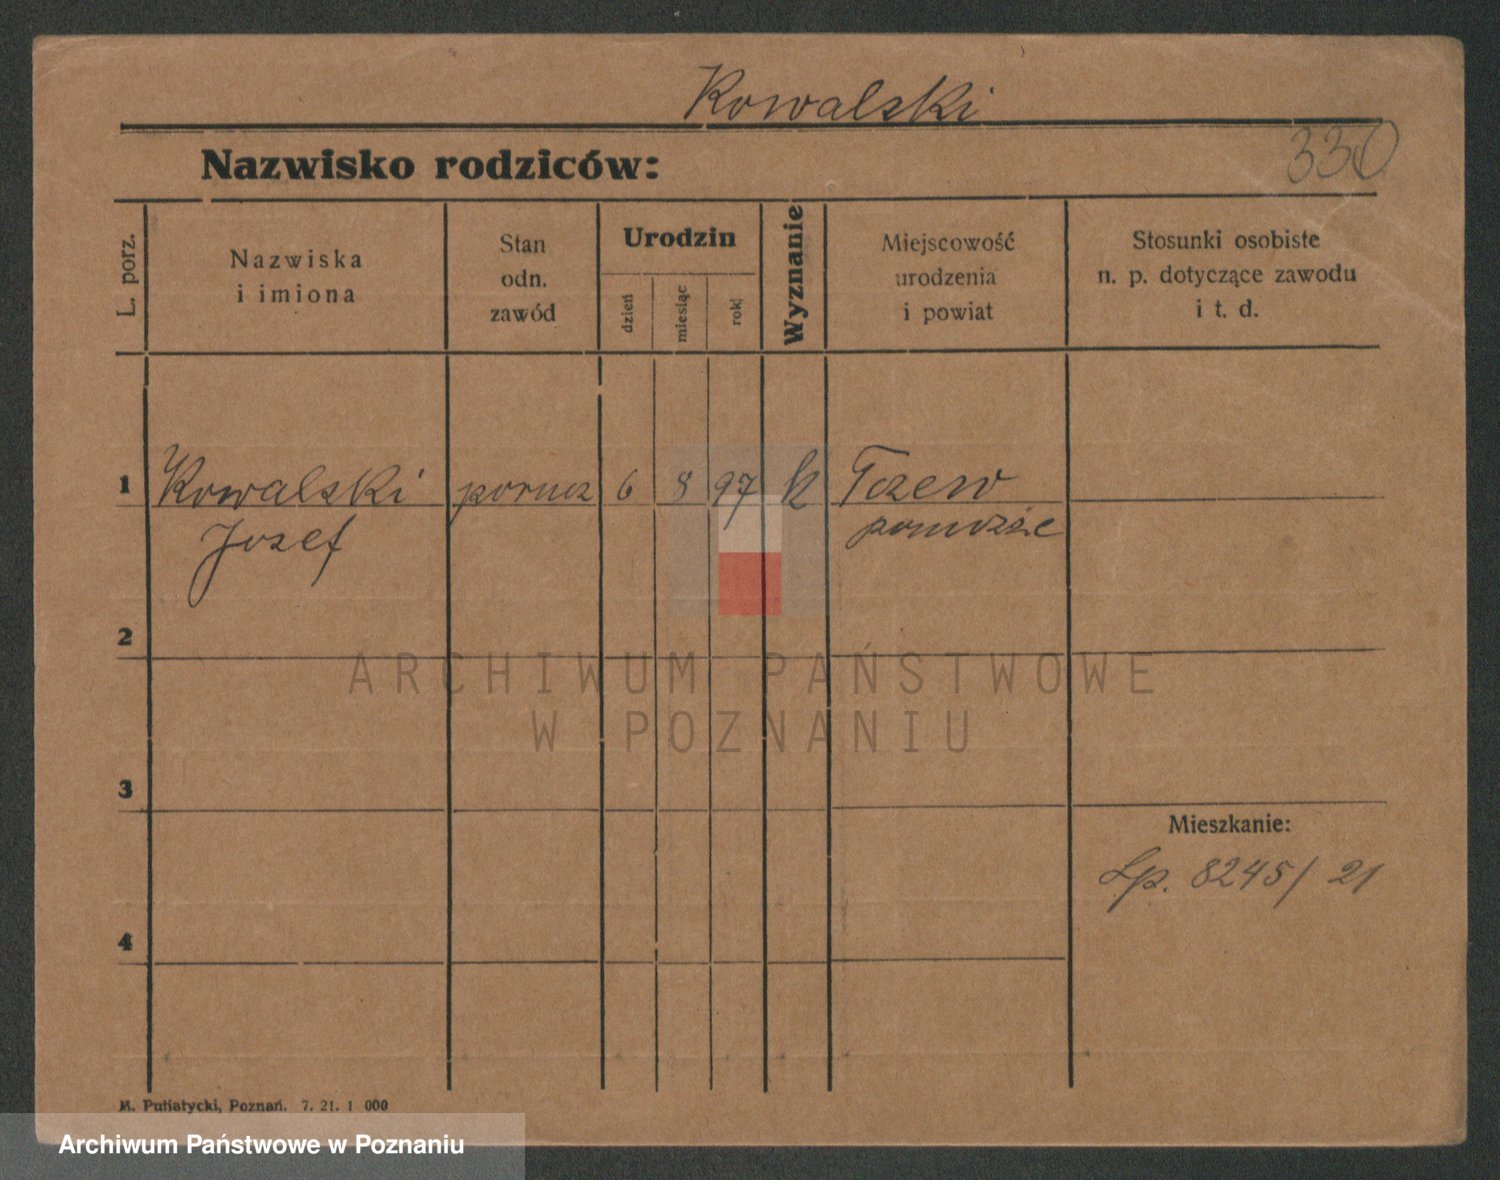 Kowalski
330
Nazwisko rodziców:
L. porz.
Nazwiska
i imiona
Stan
odn.
zawód
Urodzin
dzień
miesiąc
rok
Wyznanie
Miejscowość
urodzenia
i powiat
Stosunki osobiste
n. p. dotyczące zawodu
i t. d.
1 Kowalski porucz 6 8 97 k Tczew
Jozef
2
ARCHIWUM PAŃSTWOWE
W POZNANIU
3
Mieszkanie:
Lp. 8245/21
4
M. Putiatycki, Poznań. 7. 21. 1 000
Archiwum Państwowe w Poznaniu